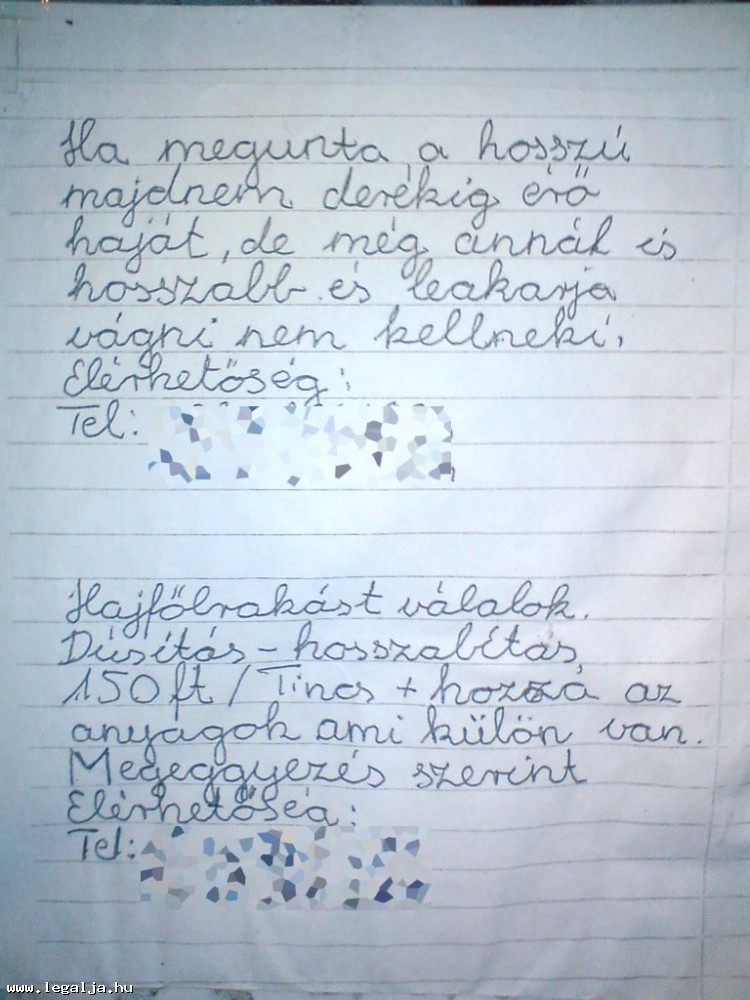 Ha megunta a hosszú
majdnem derékig érő
haját, de még annál is
hosszabb és leakarja
vágni nem kellneki.
Elérhetőség:
Tel:
Hajfőlrakást válalok.
Dúsítás-hosszabítás,
150ft/Tincs + hozzá az
anyagok ami külön van.
Megeggyezés szerint
Elérhetőség:
Tel:
www.legalja.hu